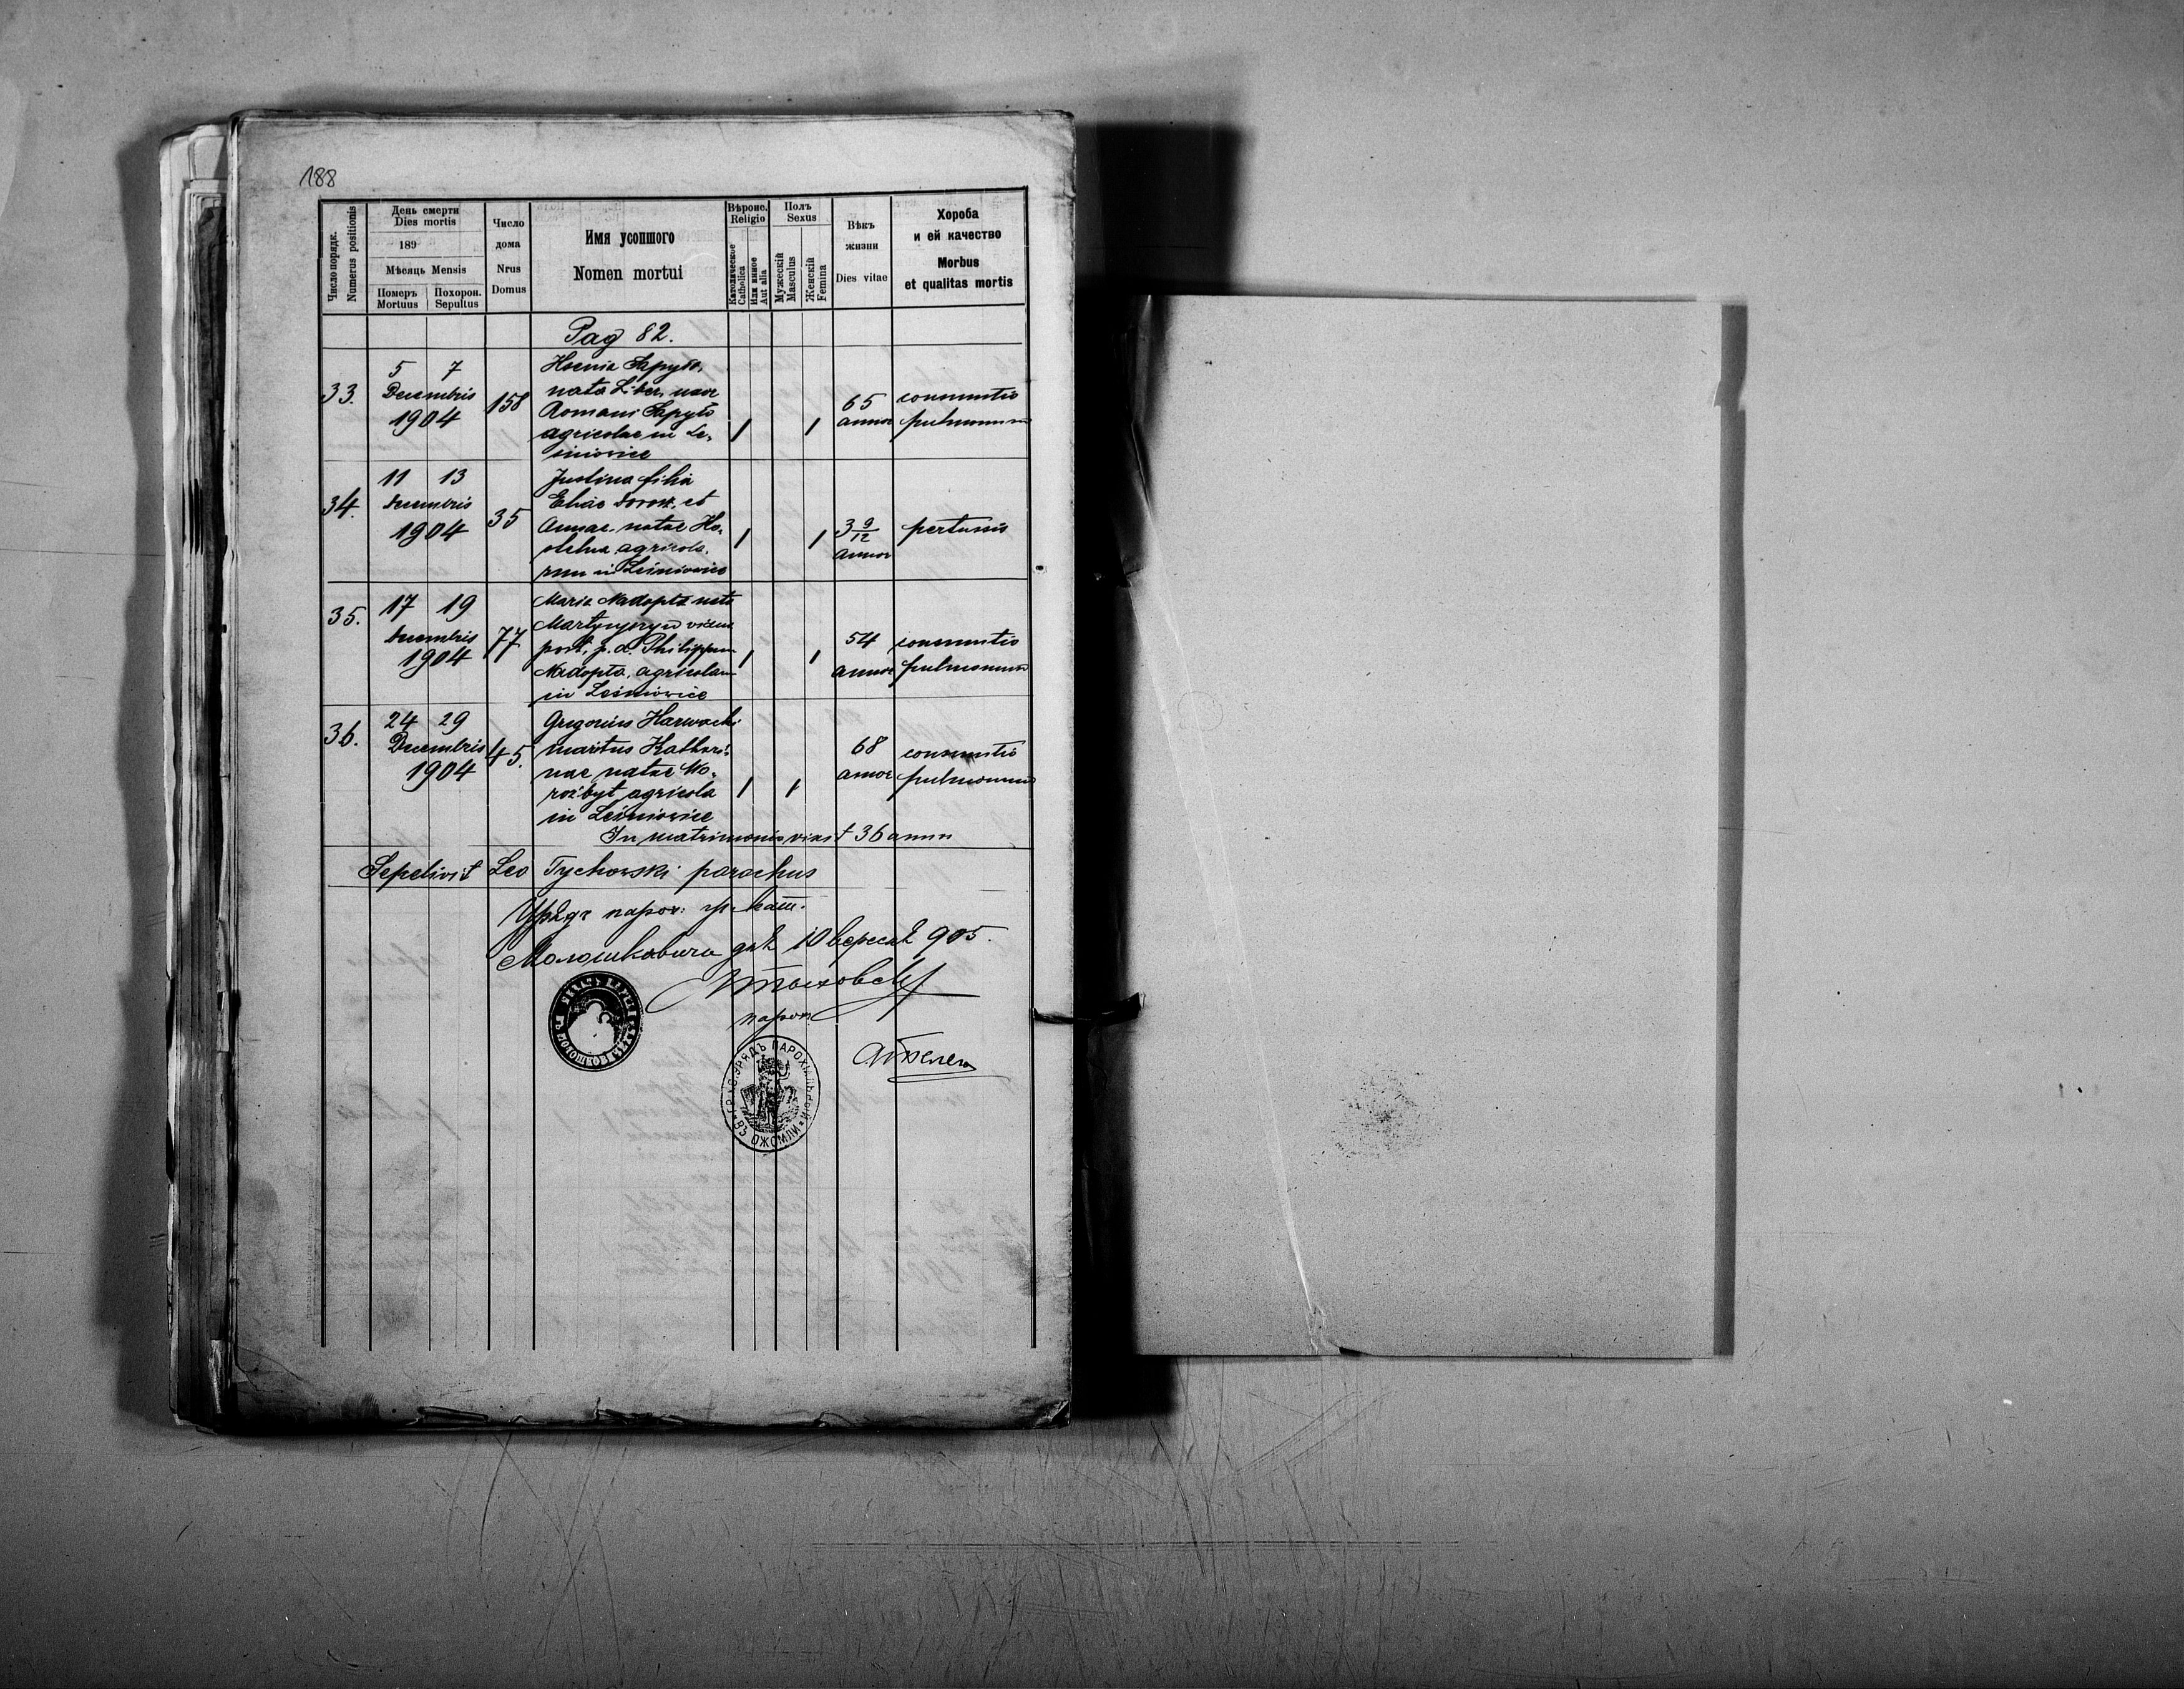 188
Число порядк.
Numerus positionis
День смерти
Dies mortis
189
Мѣсяць Mensis
Померъ
Mortuus
Похорон.
Sepultus
Число
дома
Nrus
Domus
Имя усопшого
Nomen mortui
Вѣроис.
Religio
Католическое
Catholica
Или инное
Aut alia
Полъ
Sexus
Мужескій
Masculus
Женскій
Femina
Вѣкъ
жизни
Dies vitae
Хороба
и ей качество
Morbus
et qualitas mortis
Pag 82.
33.
5 7
Decembris
1904
158
Hsenia Sapyto,
nata uxor
Romani Sapyto
agricolae in Le-
śniowice
1
1
65
annor
consumtio
pulmonum
34.
11 13
Decembris
1904
35
Justina filia
Eliae et
Annae natae Ho-
agricola-
rum in Leśniowice
1
1
3 9/12
annor
pertussis
35.
17 19
Decembris
1904
77
Maria Nadopta nata
Martynyszyn vidua
post. p. d. Philippum
Nadopta, agricolam
in Leśniowice
1
1
54
annor
consumtio
pulmonum
36.
24 29
Decembris
1904
45.
Gregorius Harwacki
maritus Kathari-
nae natae Wo-
rożbyt agricola
in Leśniowice
1
1
68
annor
consumtio
pulmonum
In matrimonio vixit 36 annn
Sepelivit Leo Tychowski parochus
Урядъ парох. гр. кат.
Малошковичи дня 10 вересня 905.
Тыховскій
парох
ГР. КАТ. УРЯДЪ ПАРОХІЯЛЬНЫЙ ВЪ ОЖОМЛИ